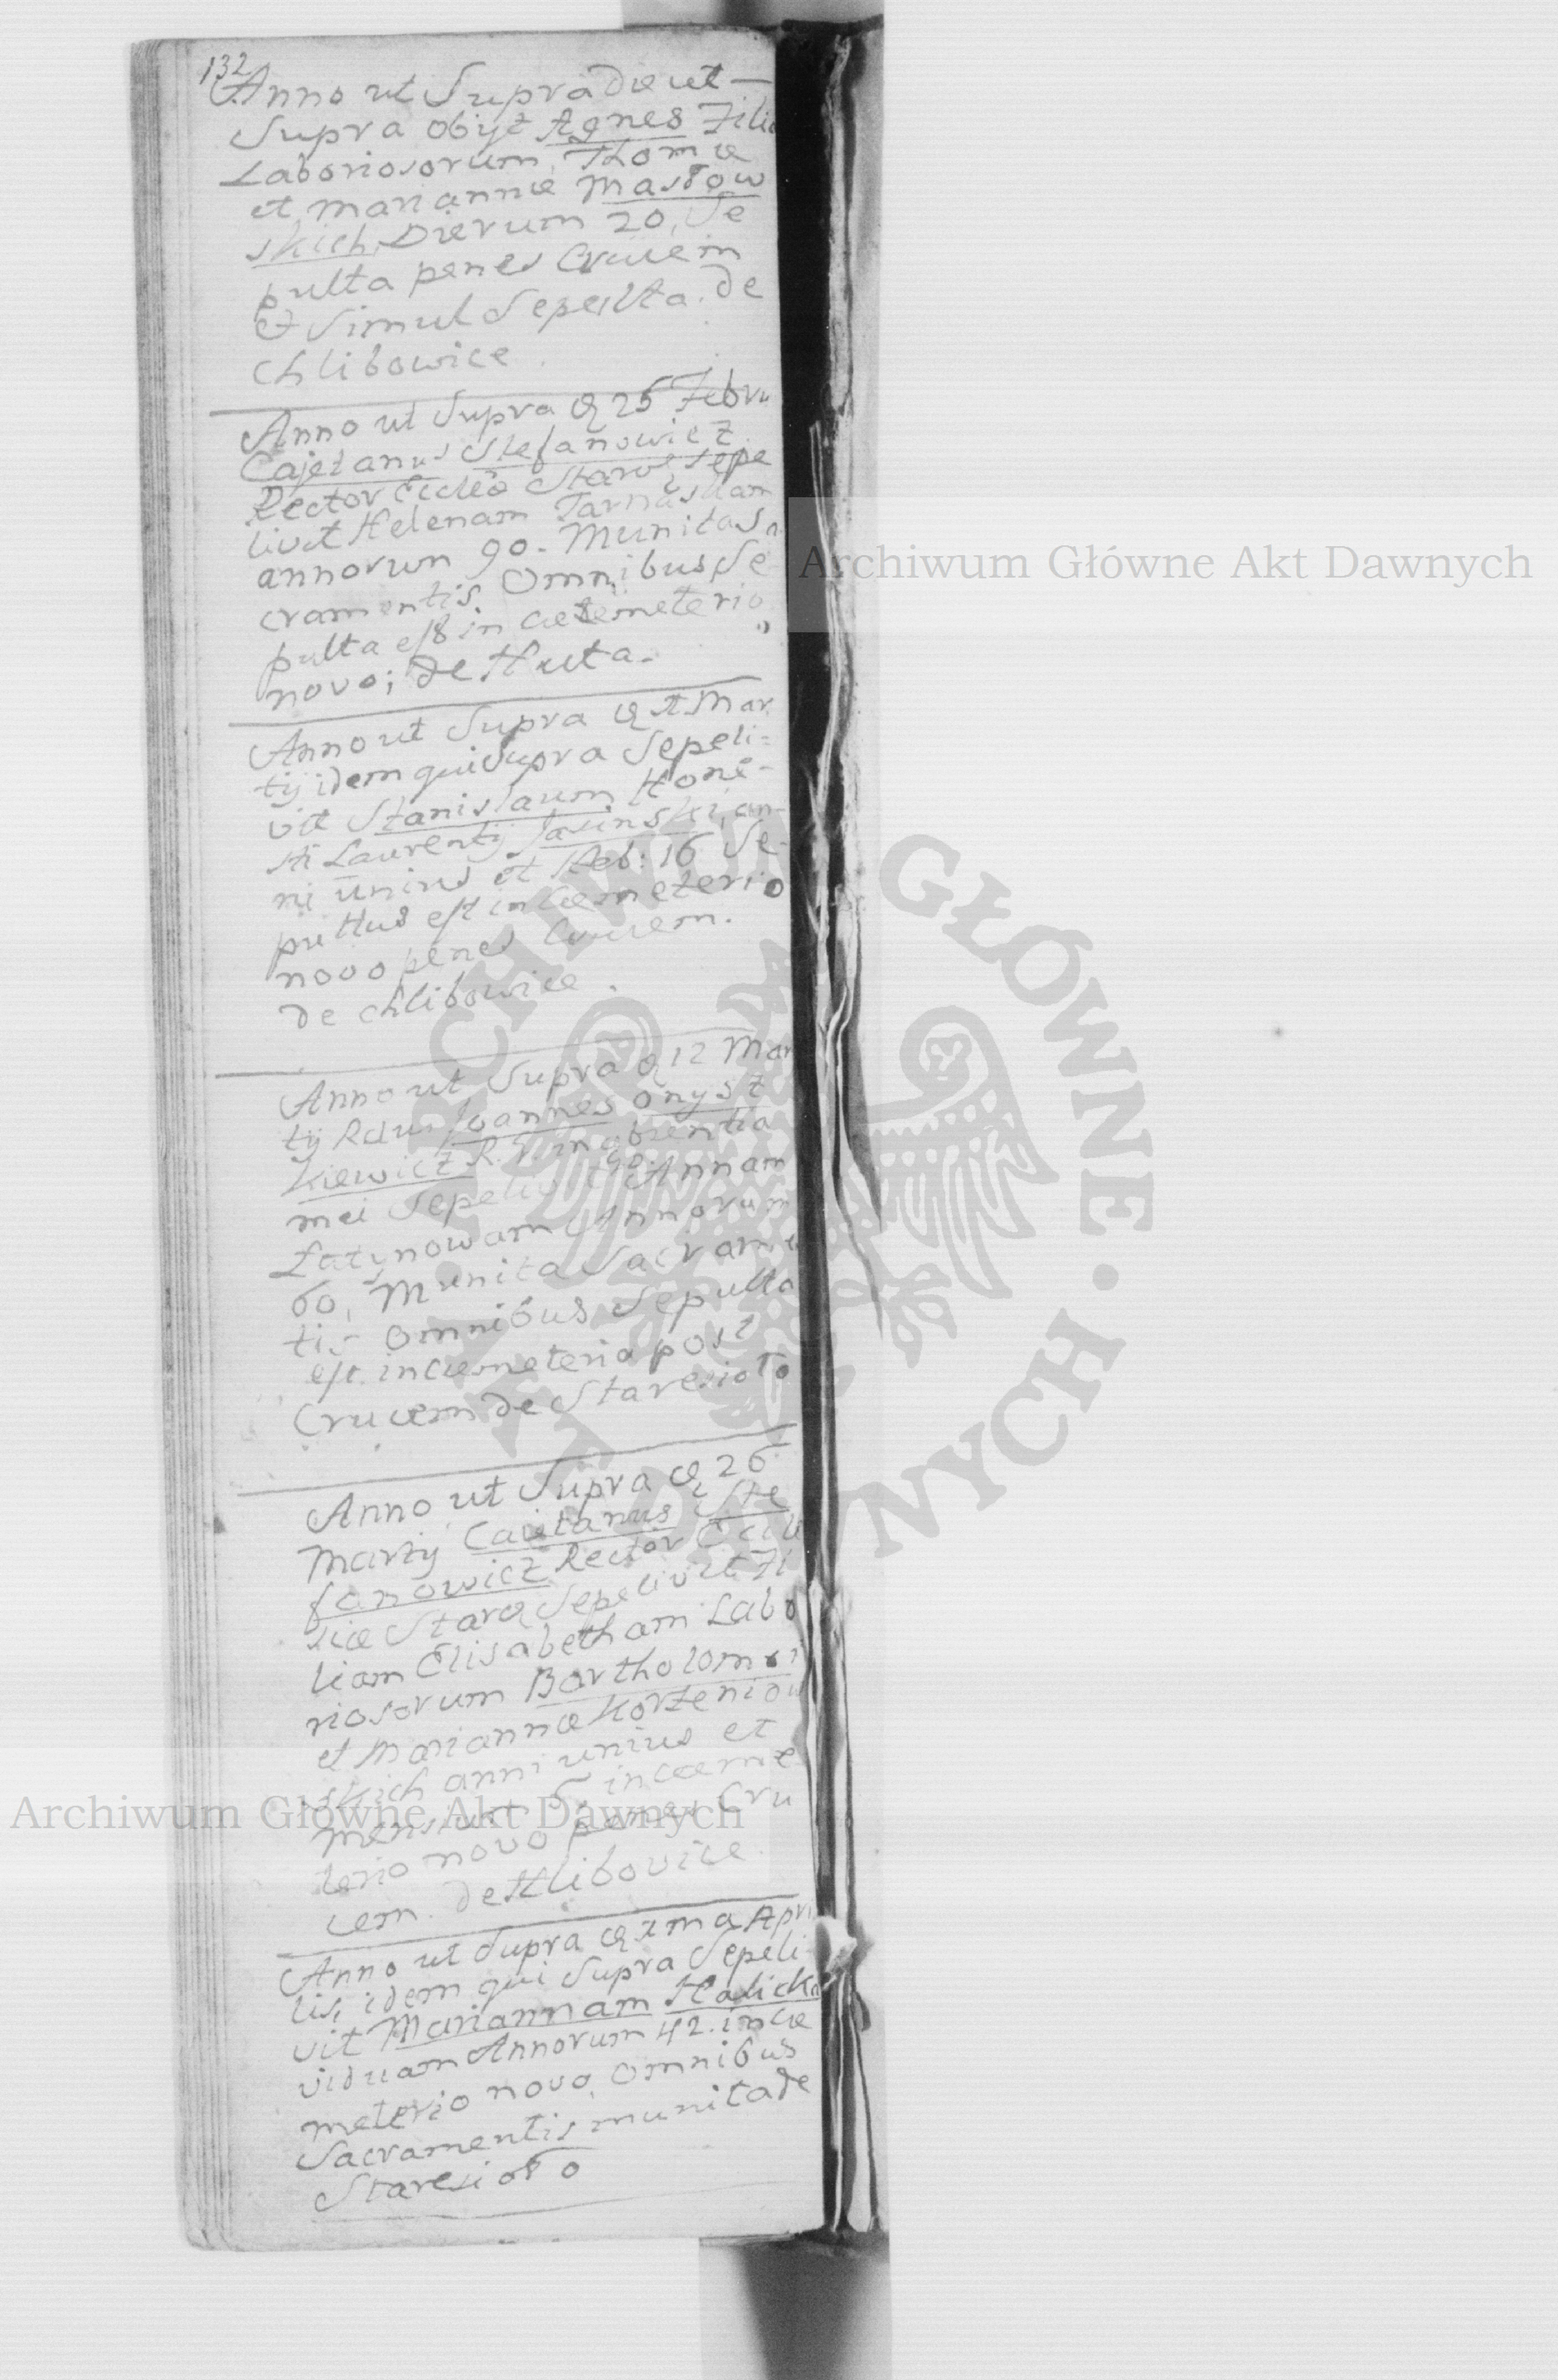 132
Anno ut Supra die ut
Supra obijt Agnes Filia
Laboriosorum Thomæ
et Mariannæ Masłow
skich Dierum 20, Se
pulta penes Crucem
et Simul Sepulta. de
Chlibowice.
Anno ut Supra 25 Febru
Cajetanus Stefanowicz
Rector Stare Sepe
livit Helenam Tarnaskam
annorum 90. Munita Sa
cramentis Omnibus Se
pulta est in cæmeterio
novo; de Huta.
Anno ut Supra Mar
tij idem qui Supra Sepeli=
vit Stanislaum Hone-
sti Laurentij Jasinski, an-
ni unius et Heb: 16 Se-
pultus est in Cæmeterio
novo penes Crucem.
de Chlibowice.
Anno ut Supra 12 Mar
tij Rdus Joannes Onysz
kiewicz R. L. in absentia
mei Sepelivit Annam
Annorum
60, Munita Sacramen
tis Omnibus Sepulta
est in Cæmeterio post
Crucem de Staresioło
Anno ut Supra 26
Martij Caietanus Ste
fanowicz Rector Eccle
siæ Stare Sepelivit Fi
liam Elisabetham Labo
riosorum Bartholomei
et Mariannæ Korzeniow
skich anni unius et
mensium 5 in cæme
terio novo penes Cru
cem. de Hlibovice.
Anno ut Supra 1ma Apri
lis, idem qui Supra Sepeli
vit Mariannam Halicka
viduam Annorum 42. in Cæ
meterio novo, omnibus
Sacramentis munita de
Staresioło
Archiwum Główne Akt Dawnych
Archiwum Główne Akt Dawnych
ARCHIWUM GŁÓWNE · AKT DAWNYCH ·